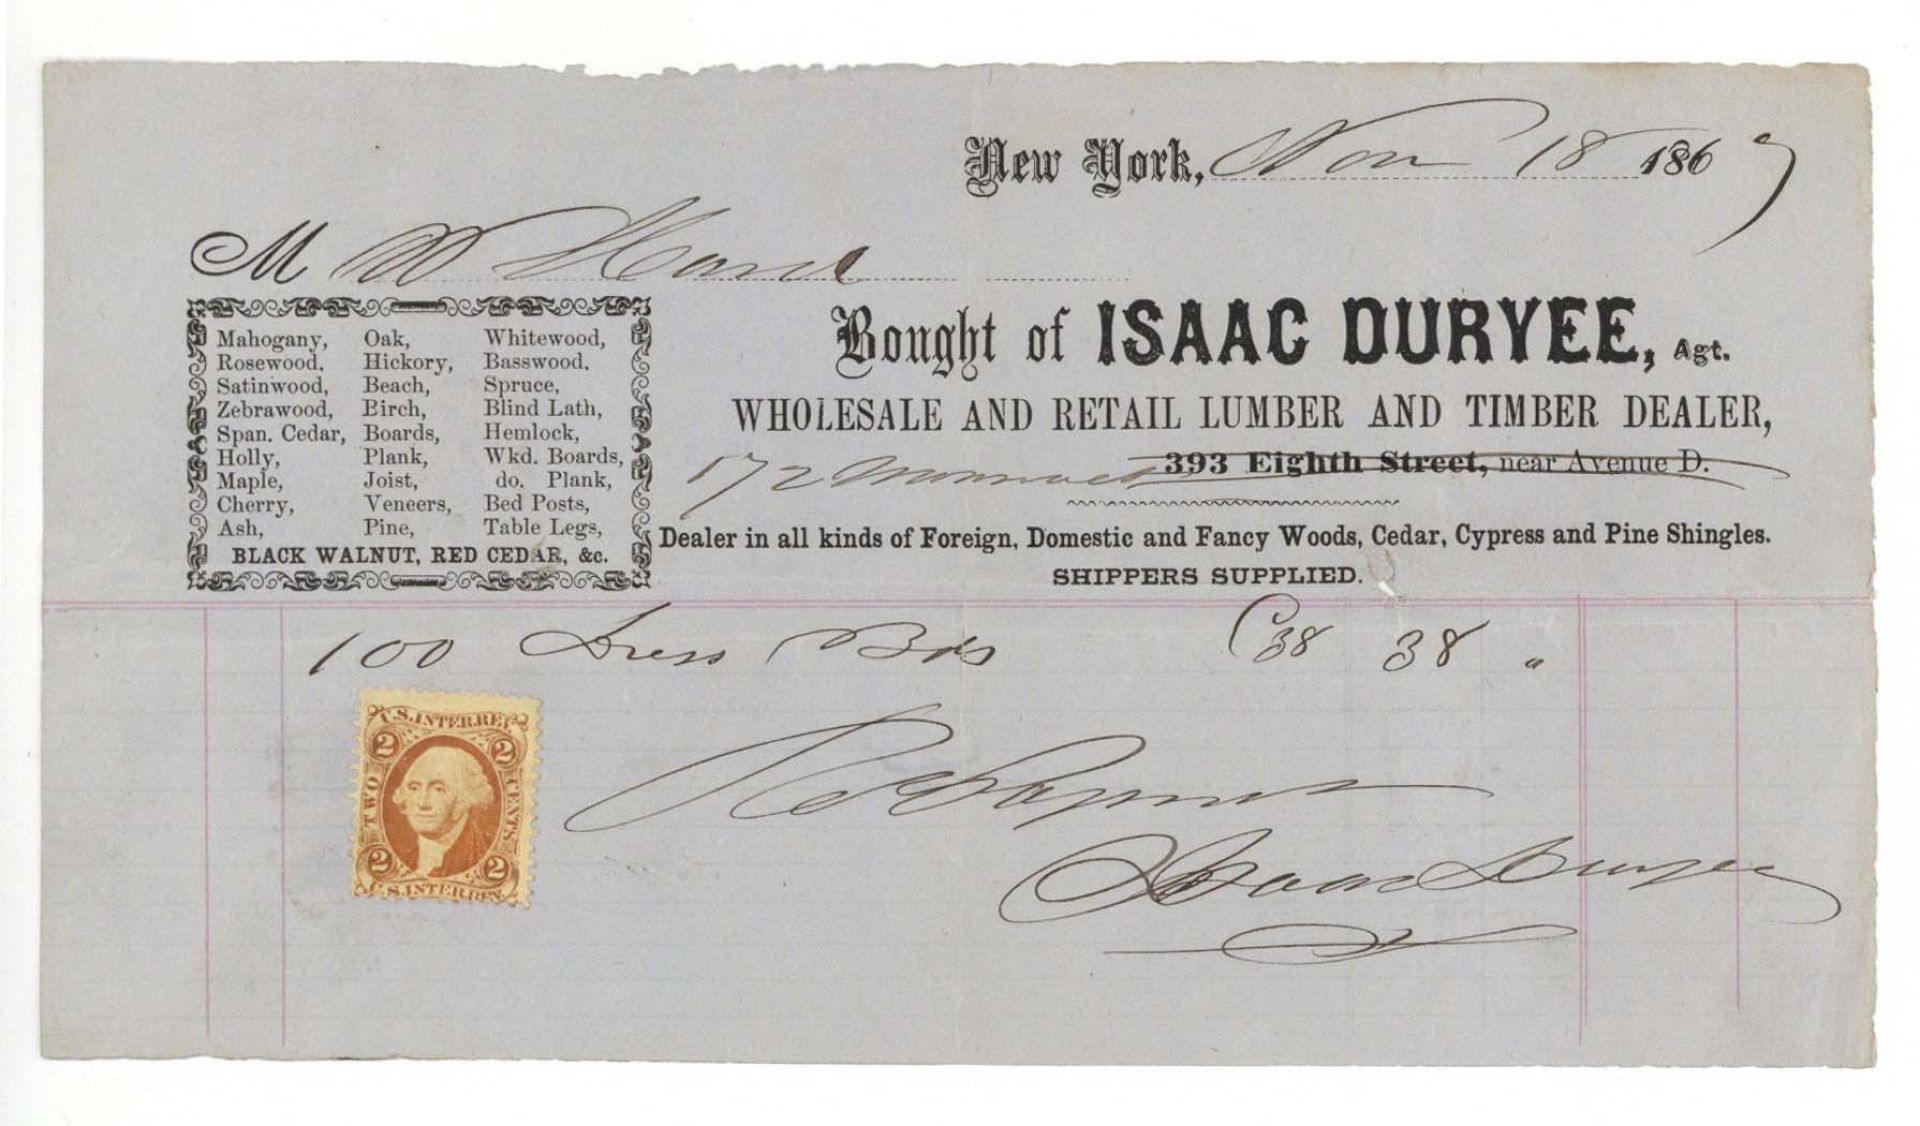 New York, Nov 18 1867
M W Hand
Mahogany, Oak, Whitewood,
Rosewood, Hickory, Basswood,
Satinwood, Beach, Spruce,
Zebrawood, Birch, Blind Lath,
Span. Cedar, Boards, Hemlock,
Holly, Plank, Wkd. Boards,
Maple, Joist, do. Plank,
Cherry, Veneers, Bed Posts,
Ash, Pine, Table Legs,
BLACK WALNUT, RED CEDAR, &c.
Bought of ISAAC DURYEE, Agt.
WHOLESALE AND RETAIL LUMBER AND TIMBER DEALER,
172 393 Eighth Street, near Avenue D.
Dealer in all kinds of Foreign, Domestic and Fancy Woods, Cedar, Cypress and Pine Shingles.
SHIPPERS SUPPLIED.
100 Dress Bds 38 38 "
U.S. INTER. REV.
2 2
TWO CENTS
2 2
U.S. INTER. REV.
Recd Payment
Isaac Duryee